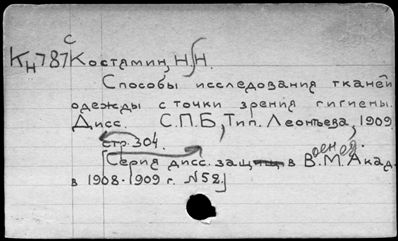 с
Кн787 Костямин, Н.Н.
Способы исследования тканей
одежды с точки зрения гигиены.
Дисс. С.П.Б., Тип. Леонтьева, 1909
стр. 304.
[Серия дисс. защ в Военно.М. Акад.
в 1908-1909 г. №52]